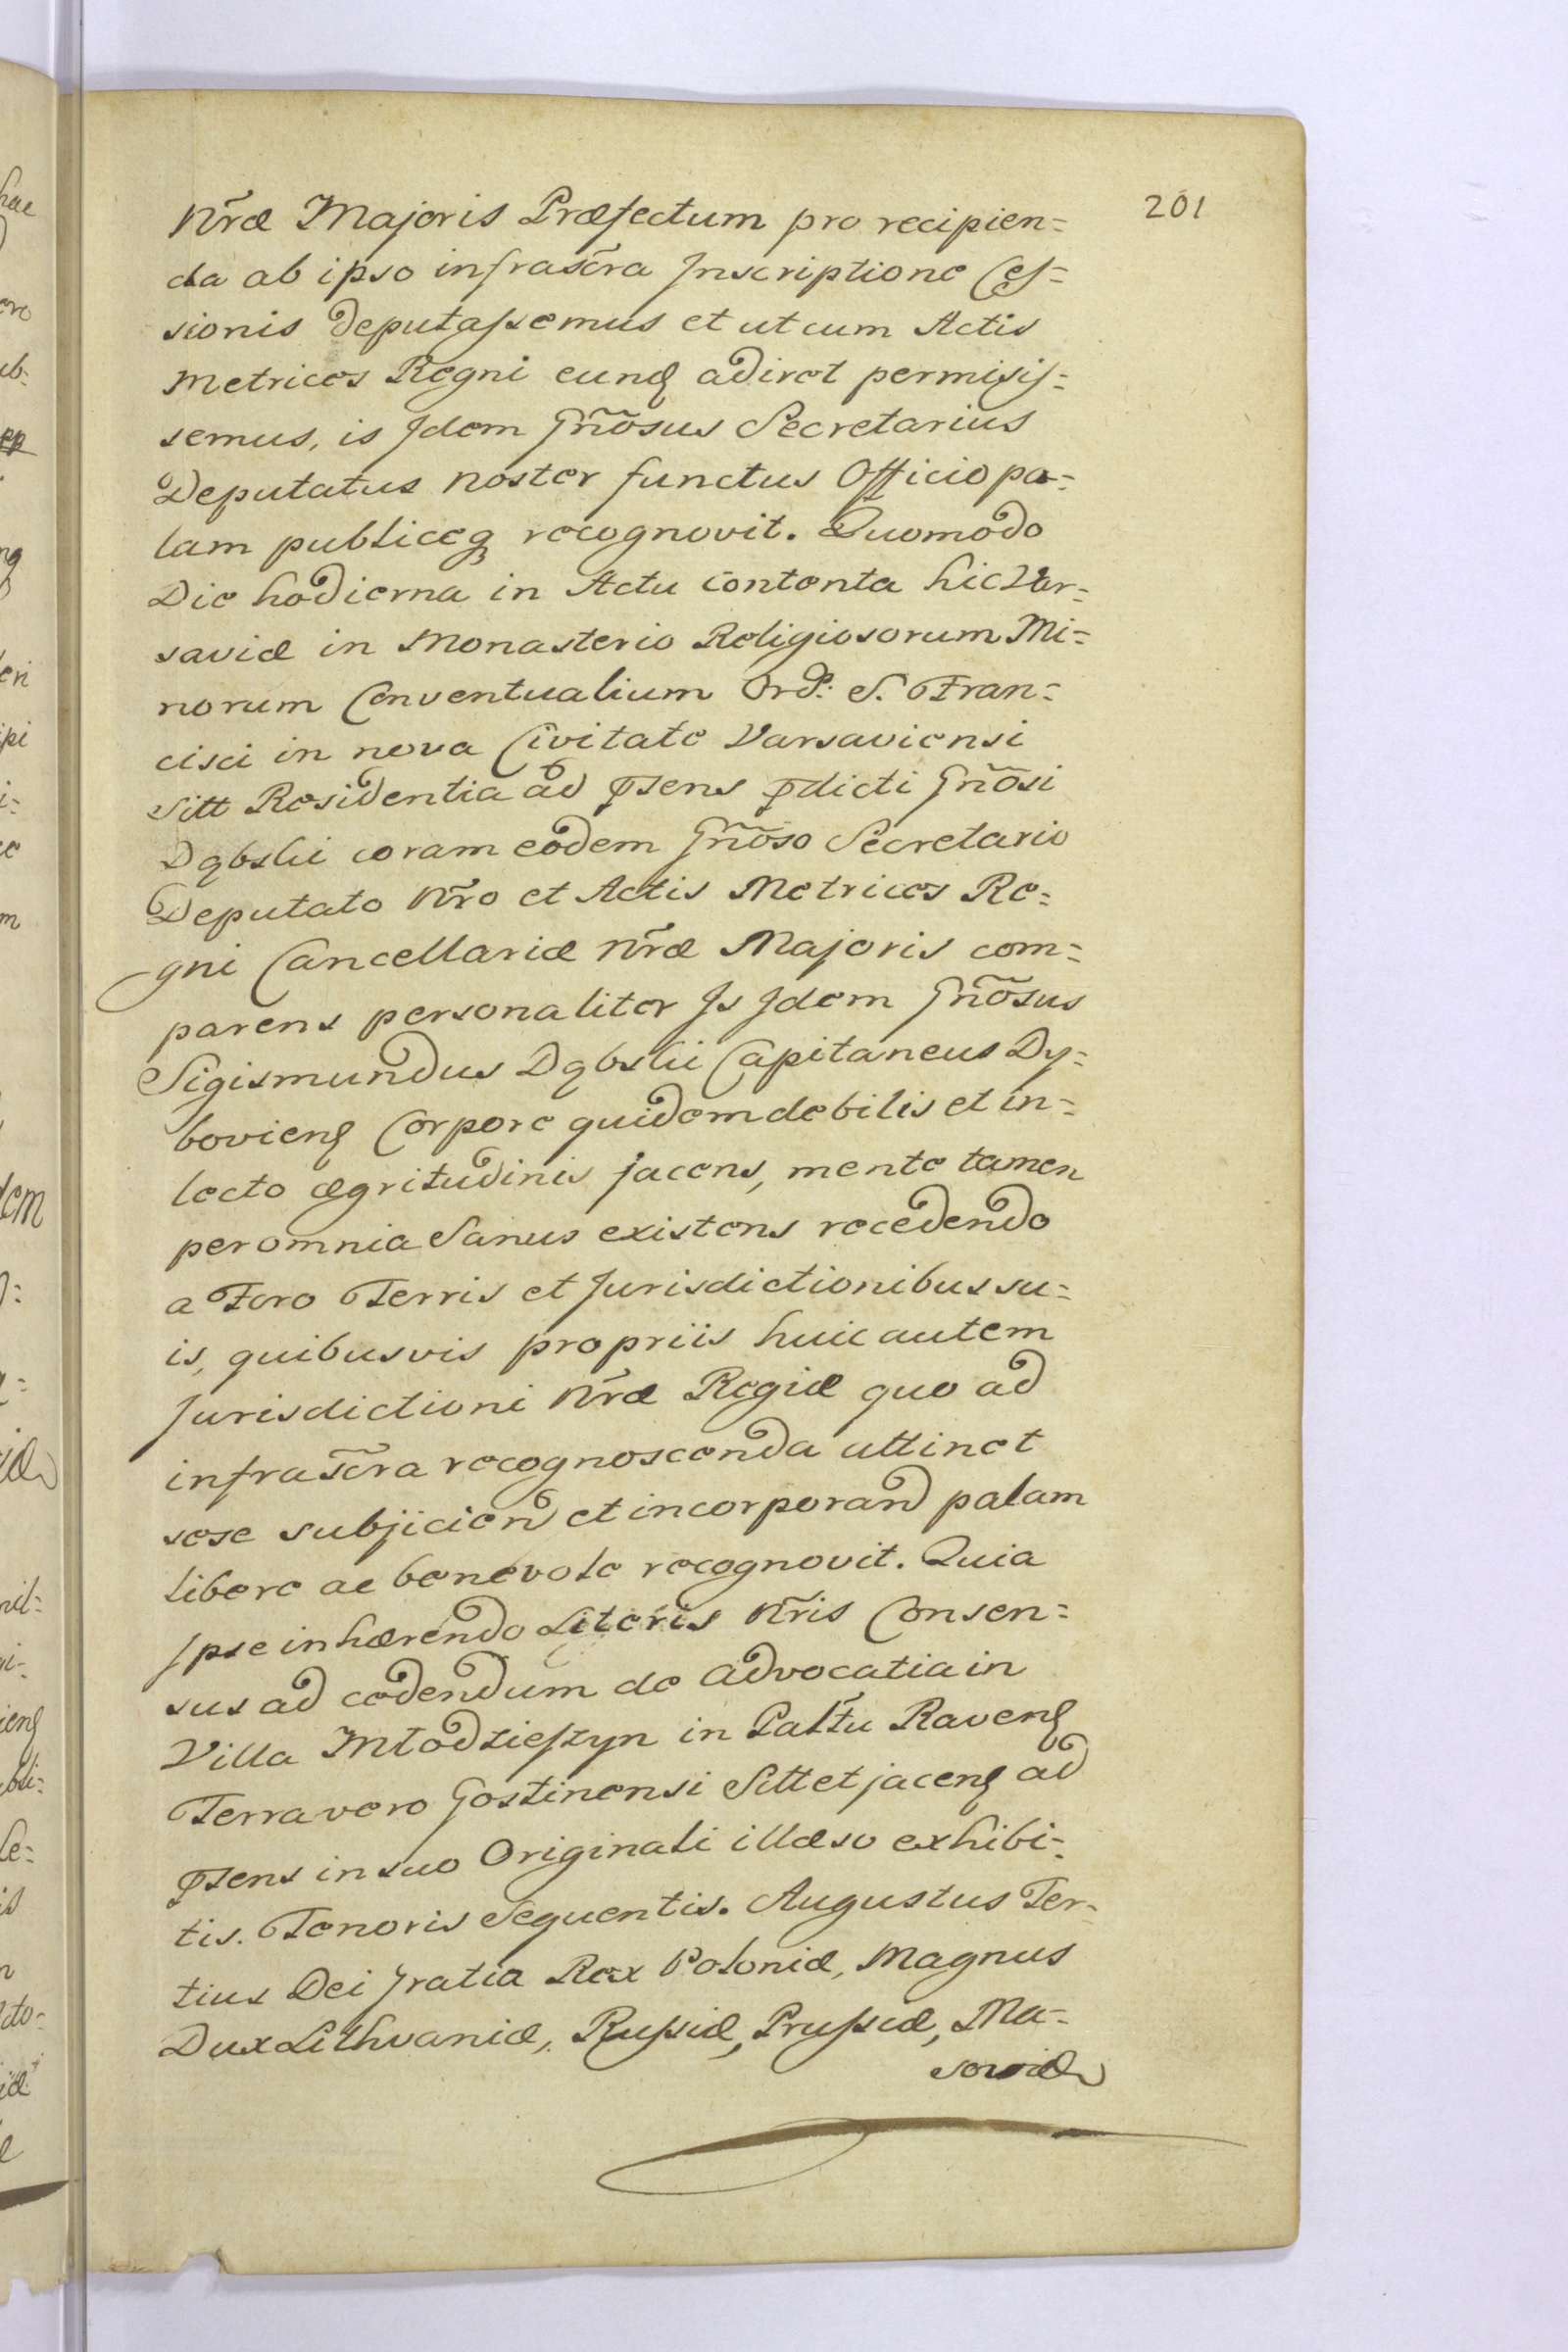 201
Nr̃æ Majoris Præfectum pro recipien=
da ab ipso infrasc̃ra Inscriptione Ces=
sionis deputassemus et ut cum Actis
Metrices Regni eunđ adiret permisis=
semus, is Idem Gñosus Secretarius
Deputatus noster functus Officio pa=
lam publiceq́ recognovit. Quomodo
Die hodierna in Actu contenta hic Var=
saviæ in Monasterio Religiosorum Mi=
norum Conventualium Ord: S. Fran=
cisci in nova Civitate Varsaviensi
Sitt Residentia ad pñsens pdicti Gñosi
Dąbski coram eodem Gñoso Secretario
Deputato Nr̃o et Actis Metrices Re=
gni Cancellariæ Nr̃æ Majoris com=
parens personaliter Is Idem Gñosus
Sigismundus Dąbski Capitaneus Dy=
bovienś Corpore quidem debilis et in=
lecto ægritudinis jacens, mente tamen
per omnia Sanus existens recedendo
a Foro Terris et Jurisdictionibus su=
is, quibusvis propriis huic autem
Jurisdictioni Nr̃æ Regiæ quo ad
infrasc̃ra recognoscenda attinet
sese subjicien et incorporand palam
libere ac benevole recognovit. Quia
Ipse inhærendo Literis Nr̃is Consen=
sus ad cedendum de Advocatia in
Villa Młodzieszyn in Paltũ Ravenś
Terra vero Gostinensi Sitt et jacenś ad
pñsens in suo Originali illæso exhibi=
tis. Tenoris Sequentis. Augustus Ter=
tius Dei Gratia Rex Poloniæ, Magnus
Dux Lithvaniæ, Russiæ, Prussiæ, Ma=
soviæ